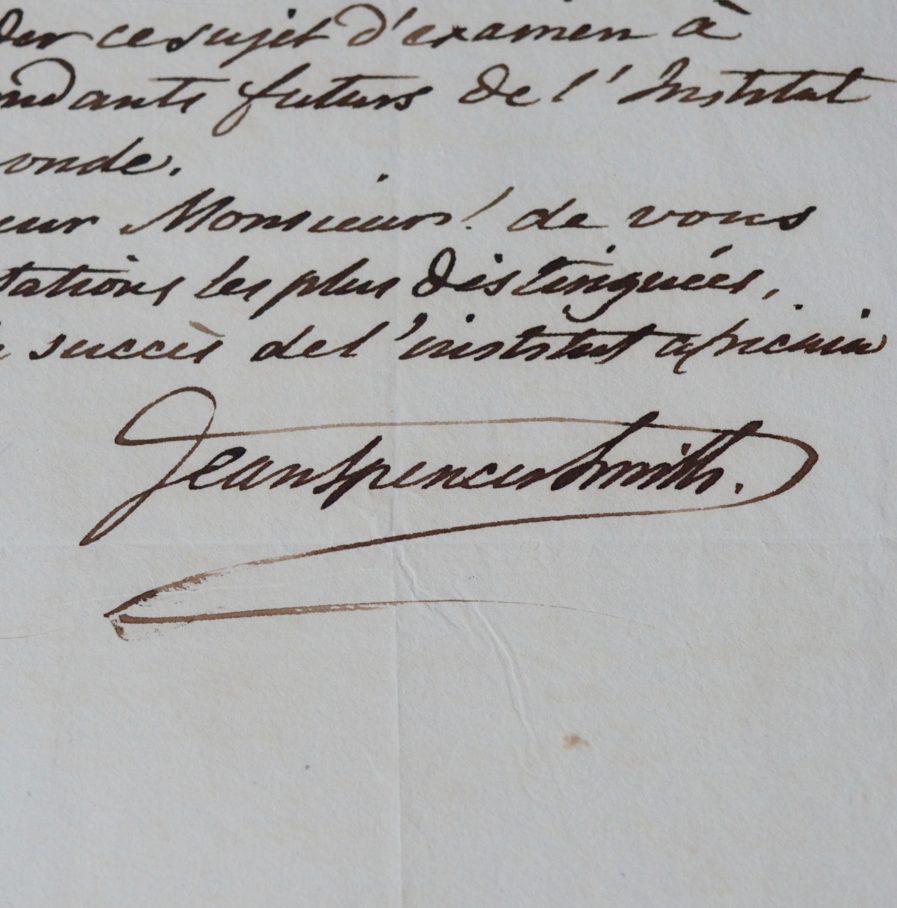 der ce sujet d'examen à
ndants futurs de l'Institut
onde.
eur Monsieur! de vous
tations les plus distinguées,
succès de l'institut africain
Jean Spencer Smith.